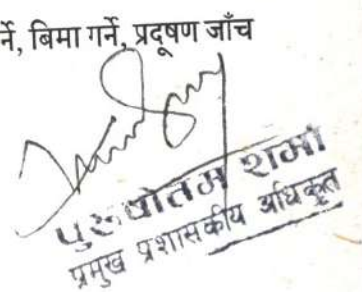 र्ने, बिमा गर्ने, प्रदूषण जाँच
पुरुषोतम शर्मा
प्रमुख प्रशासकीय अधिकृत